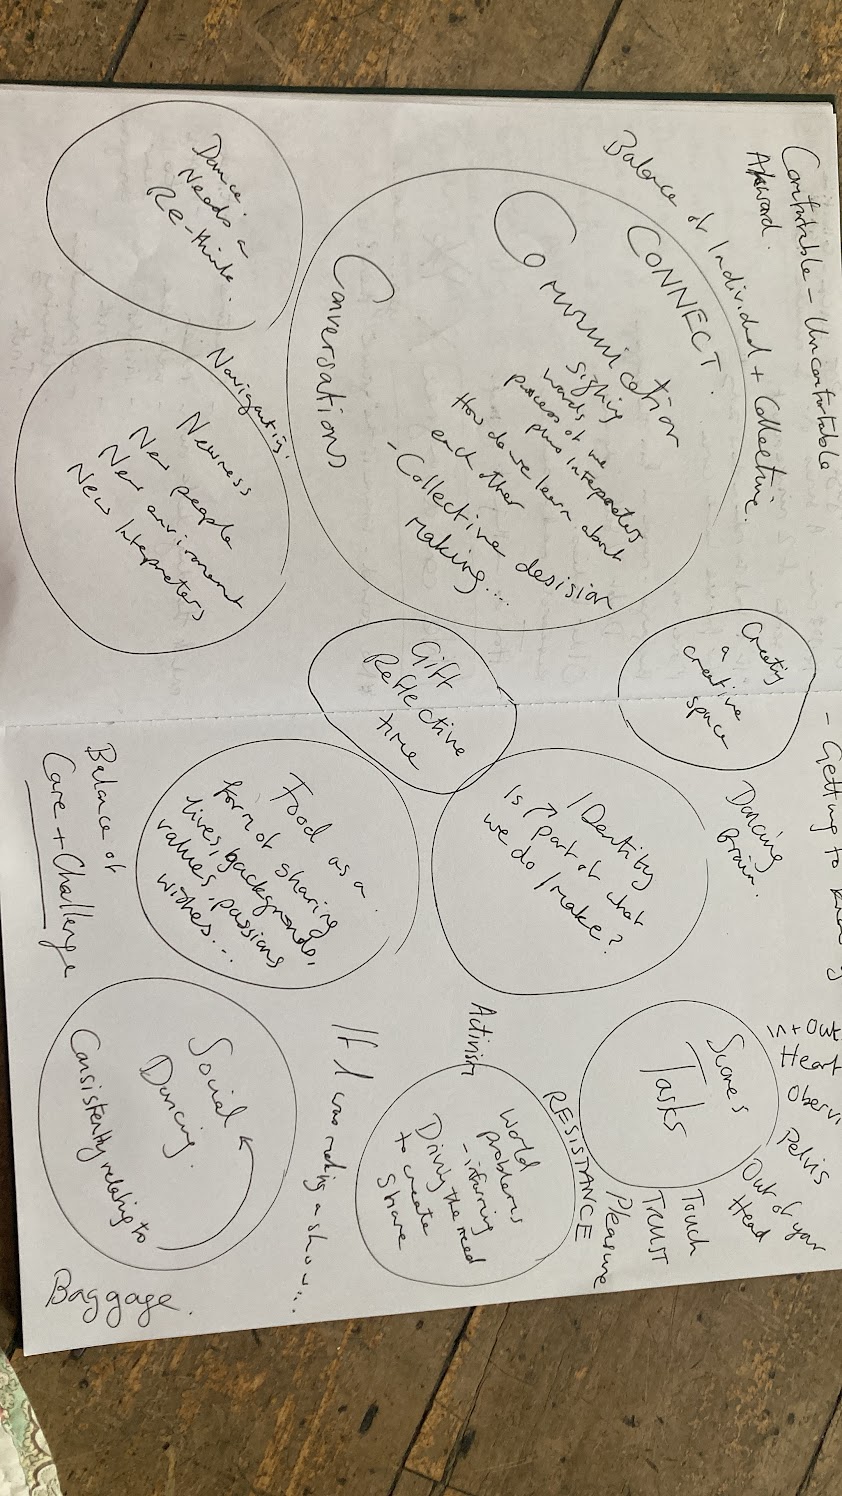 Comfortable - Uncomfortable
Akward.
Balance of Individual + Collective.
CONNECT.
Communication
Signing
words
process of me
plus Interpreters
How do we learn about
each other
- Collective desision
making....
Conversations
Dance.
Needs a
Re-think.
Navigating.
Newness
New people
New environment
New Intepreters
- Getting to
Creating
a
creative
space
Dancing
Brain.
Gift
Reflective
time
IDentity
Is ↗ part of what
we do / make?
Food as a
form of sharing
lives, backgrounds,
values, passions
wishes...
Balance of
Care + Challenge
In + Out
Heart
Pelvis
Out of your
Head
Touch
TRUST
Pleasure
Scores
Tasks
RESISTANCE
Activism
World
problems
- informing
Driving the need
to create
Share
If I was making a show...
Social
Dancing.
Consistently relating to
Baggage.